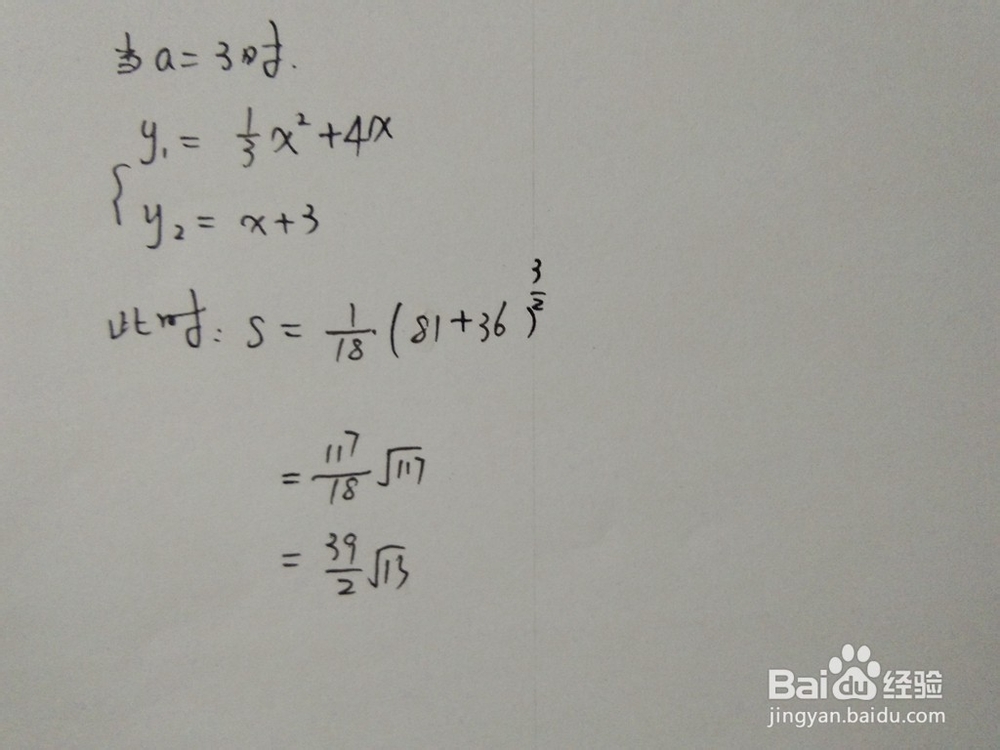 当a=3时.
y₁ = 1/3 x² + 4x
{ y₂ = x+3
此时: S = 1/18 · (81+36)^(3/2)
= 117/18 √117
= 39/2 √13
Baidu 经验
jingyan.baidu.com